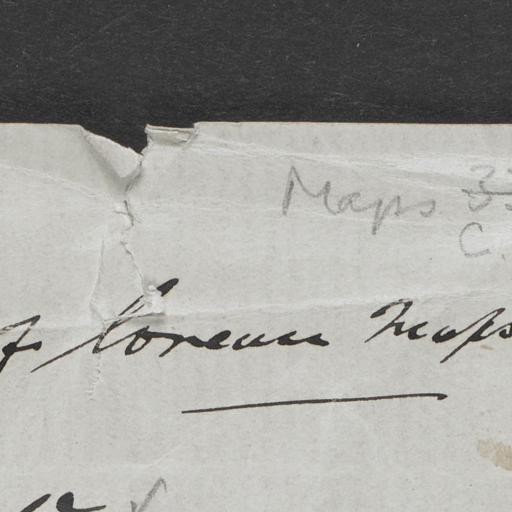 Maps 33
C.
of Corean Maps